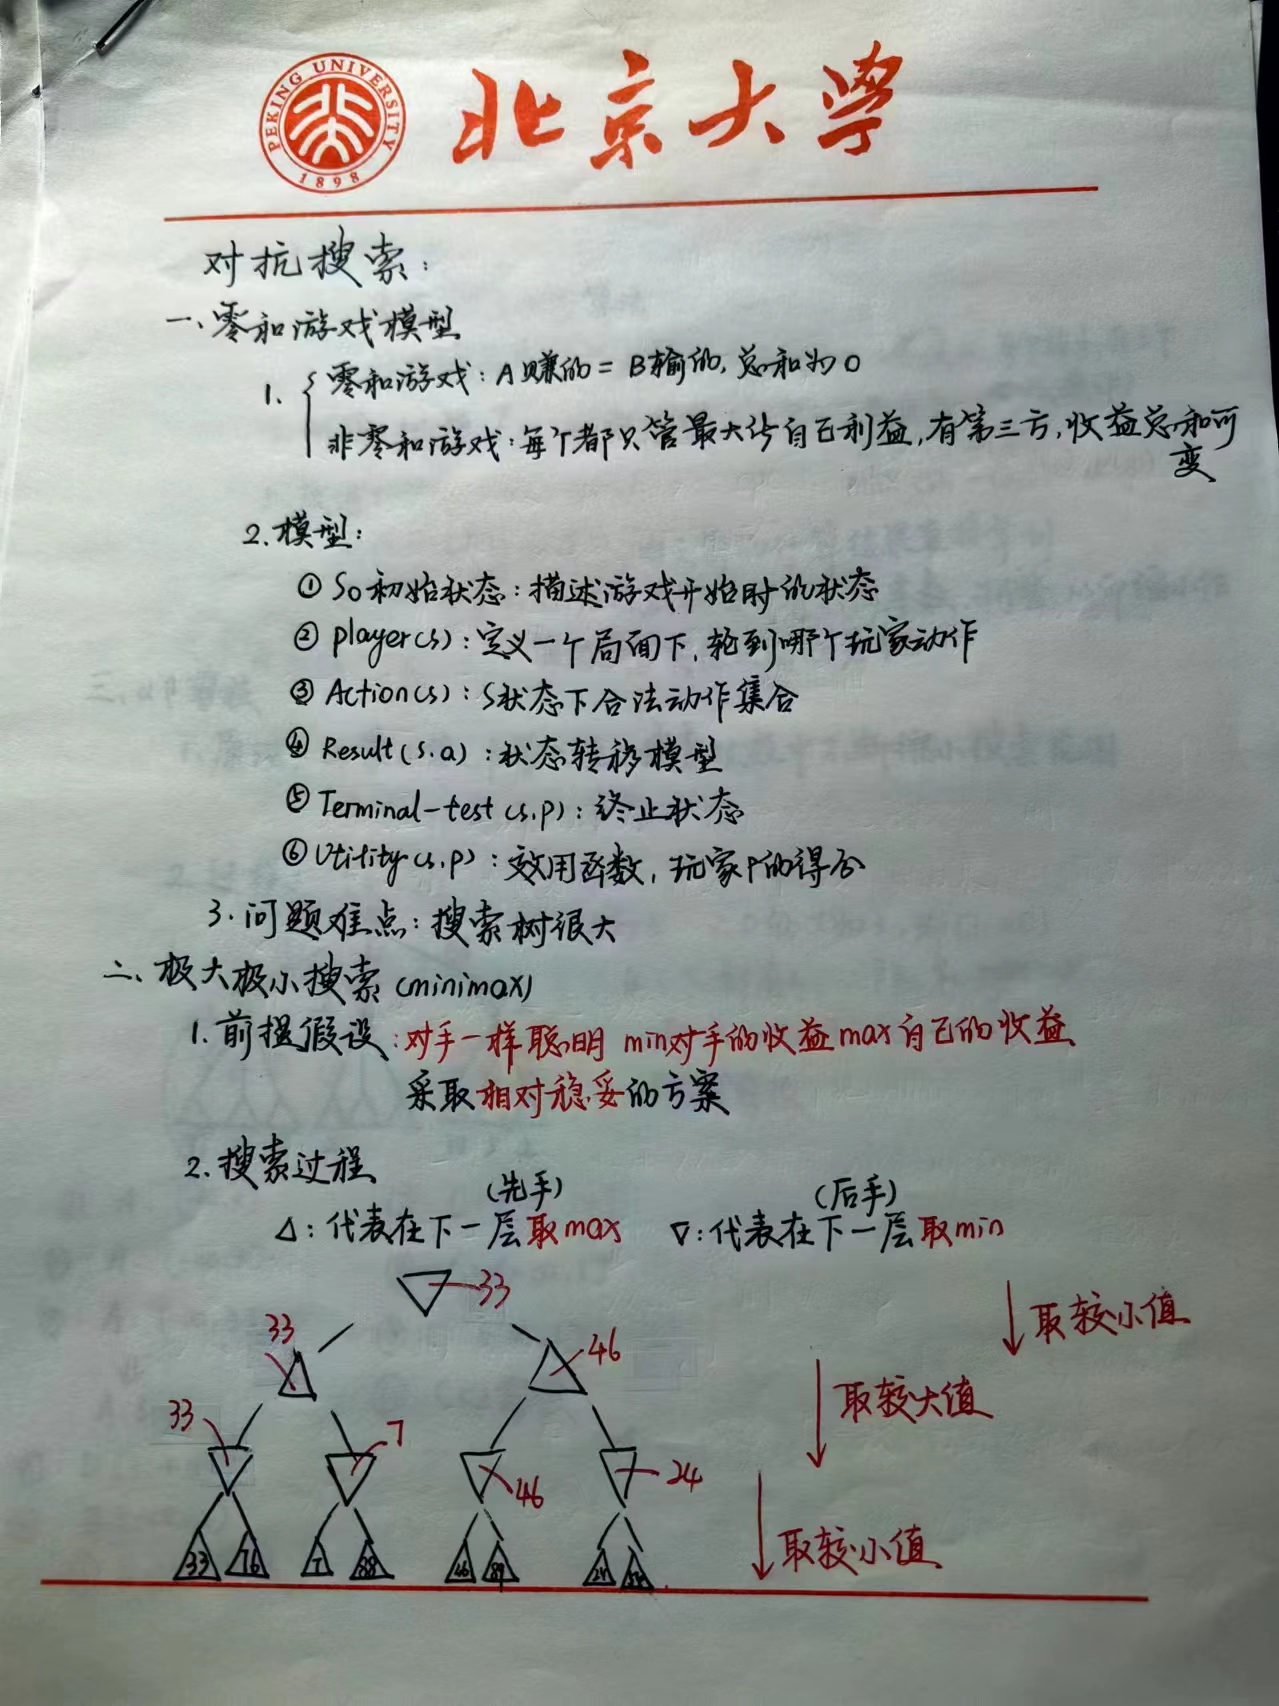 PEKING UNIVERSITY
1898
北京大学
对抗搜索：
一、零和游戏模型
1. { 零和游戏：A赚的 = B输的，总和为0
非零和游戏：每个都只管最大化自己利益，有第三方，收益总和可
变
2. 模型：
① S0初始状态：描述游戏开始时的状态
② player(s)：定义一个局面下，轮到哪个玩家动作
③ Action(s)：S状态下合法动作集合
④ Result(s.a)：状态转移模型
⑤ Terminal-test(s,p)：终止状态
⑥ Utility(s,p)：效用函数，玩家P的得分
3. 问题难点：搜索树很大
二、极大极小搜索(minimax)
1. 前提假设：对手一样聪明 min对手的收益max自己的收益
采取相对稳妥的方案
2. 搜索过程
(先手) (后手)
△：代表在下一层取max ▽：代表在下一层取min
33
33 46 取较小值
33 7 46 24 取较大值
33 76 7 88 46 89 24 取较小值